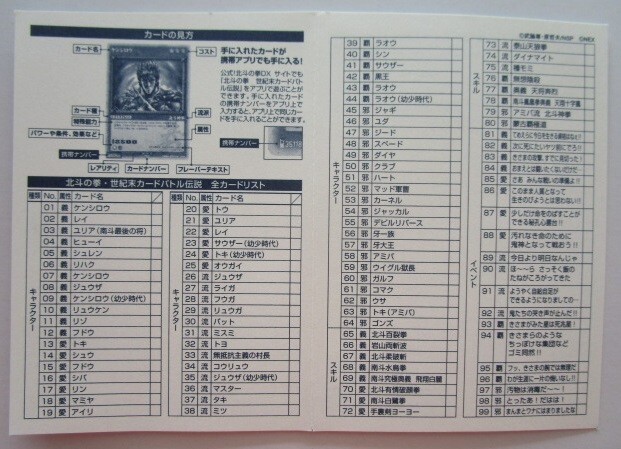 カードの見方
カード名
コスト
カード種
特殊能力
パワーや条件、効果など
携帯ナンバー
流派
属性
レアリティ
カードナンバー
フレーバーテキスト
手に入れたカードが
携帯アプリでも手に入る!
公式!北斗の拳DX サイトでも
「北斗の拳 世紀末カードバト
ル伝説」をアプリで遊ぶことが
できます。手に入れたカード
の携帯ナンバーをアプリ上で
入力すると、アプリ上で同じカー
ドを手に入れることができます。
携帯ナンバー
北斗の拳・世紀末カードバトル伝説 全カードリスト
種類 No. 属性 カード名
キャラクター
01 義 ケンシロウ
02 義 レイ
03 義 ユリア(南斗最後の将)
04 義 ヒューイ
05 義 シュレン
06 義 リハク
07 義 ケンシロウ
08 義 ジュウザ
09 義 ケンシロウ(幼少時代)
10 義 リュウケン
11 義 リゾ
12 義 フドウ
13 愛 トキ
14 愛 シュウ
15 愛 フドウ
16 愛 シバ
17 愛 リン
18 愛 マミヤ
19 愛 アイリ
種類 No. 属性 カード名
キャラクター
20 愛 トウ
21 愛 ユリア
22 愛 レイ
23 愛 サウザー(幼少時代)
24 愛 トキ(幼少時代)
25 愛 オウガイ
26 流 ジュウザ
27 流 ライガ
28 流 フウガ
29 流 リュウガ
30 流 バット
31 流 ミスミ
32 流 トヨ
33 流 無抵抗主義の村長
34 流 コウリュウ
35 流 ジュウザ(幼少時代)
36 流 マスター
37 流 タキ
38 流 ミツ
キャラクター
39 覇 ラオウ
40 覇 シン
41 覇 サウザー
42 覇 黒王
43 覇 ラオウ
44 覇 ラオウ(幼少時代)
45 邪 ジャギ
46 邪 ユダ
47 邪 ジード
48 邪 スペード
49 邪 ダイヤ
50 邪 クラブ
51 邪 ハート
52 邪 マッド軍曹
53 邪 カーネル
54 邪 ジャッカル
55 邪 デビルリバース
56 邪 牙一族
57 邪 牙大王
58 邪 アミバ
59 邪 ウイグル獄長
60 邪 ガルフ
61 邪 コマク
62 邪 ウサ
63 邪 トキ(アミバ)
64 邪 ゴンズ
スキル
65 義 北斗百裂拳
66 義 岩山両斬波
67 義 北斗柔破斬
68 義 南斗水鳥拳
69 義 南斗究極奥義 飛翔白麗
70 愛 北斗有情破顔拳
71 愛 南斗白鷺拳
72 愛 手裏剣ヨーヨー
スキル
73 流 泰山天狼拳
74 流 ダイナマイト
75 流 種モミ
76 覇 無想陰殺
77 覇 奥義 天将奔烈
78 覇 南斗鳳凰拳奥義 天翔十字鳳
79 邪 アミバ流 北斗神拳
80 邪 蒙古覇極道
イベント
81 義 てめえらに今日を生きる資格はねえ!!
82 義 次に死にたいヤツ前にでろ!!
83 義 きさまの攻撃、すでに見切った!
84 義 おまえとは戦いたくないだけだ…
85 愛 さあ みんな戦いの準備よ!!
86 愛 このまま人質となって
生きのびようとは思わない!!
87 愛 少しだけ命をのばすことが
できる秘孔心霊台!!
88 愛 汚れなき命のために
鬼神となって戦おう!!
89 流 今日より明日なんじゃ
90 流 ほ〜〜ら さっそく飯の
たねがころがってきた
91 流 ようやく自給自足が
できるようになりましての…
92 流 俺たちの哭き声が止んだ!!
93 覇 きさまがみた星は死兆星!
94 覇 きさまらのような
ちっぽけな集団など
ゴミ同然!!
95 覇 フッ、きさまの腕では無理だ
96 覇 わが生涯に一片の悔いなし!!
97 邪 汚物は消毒だ〜〜!
98 邪 とったあ!だはは!
99 邪 まんまとワナにはまりましたな